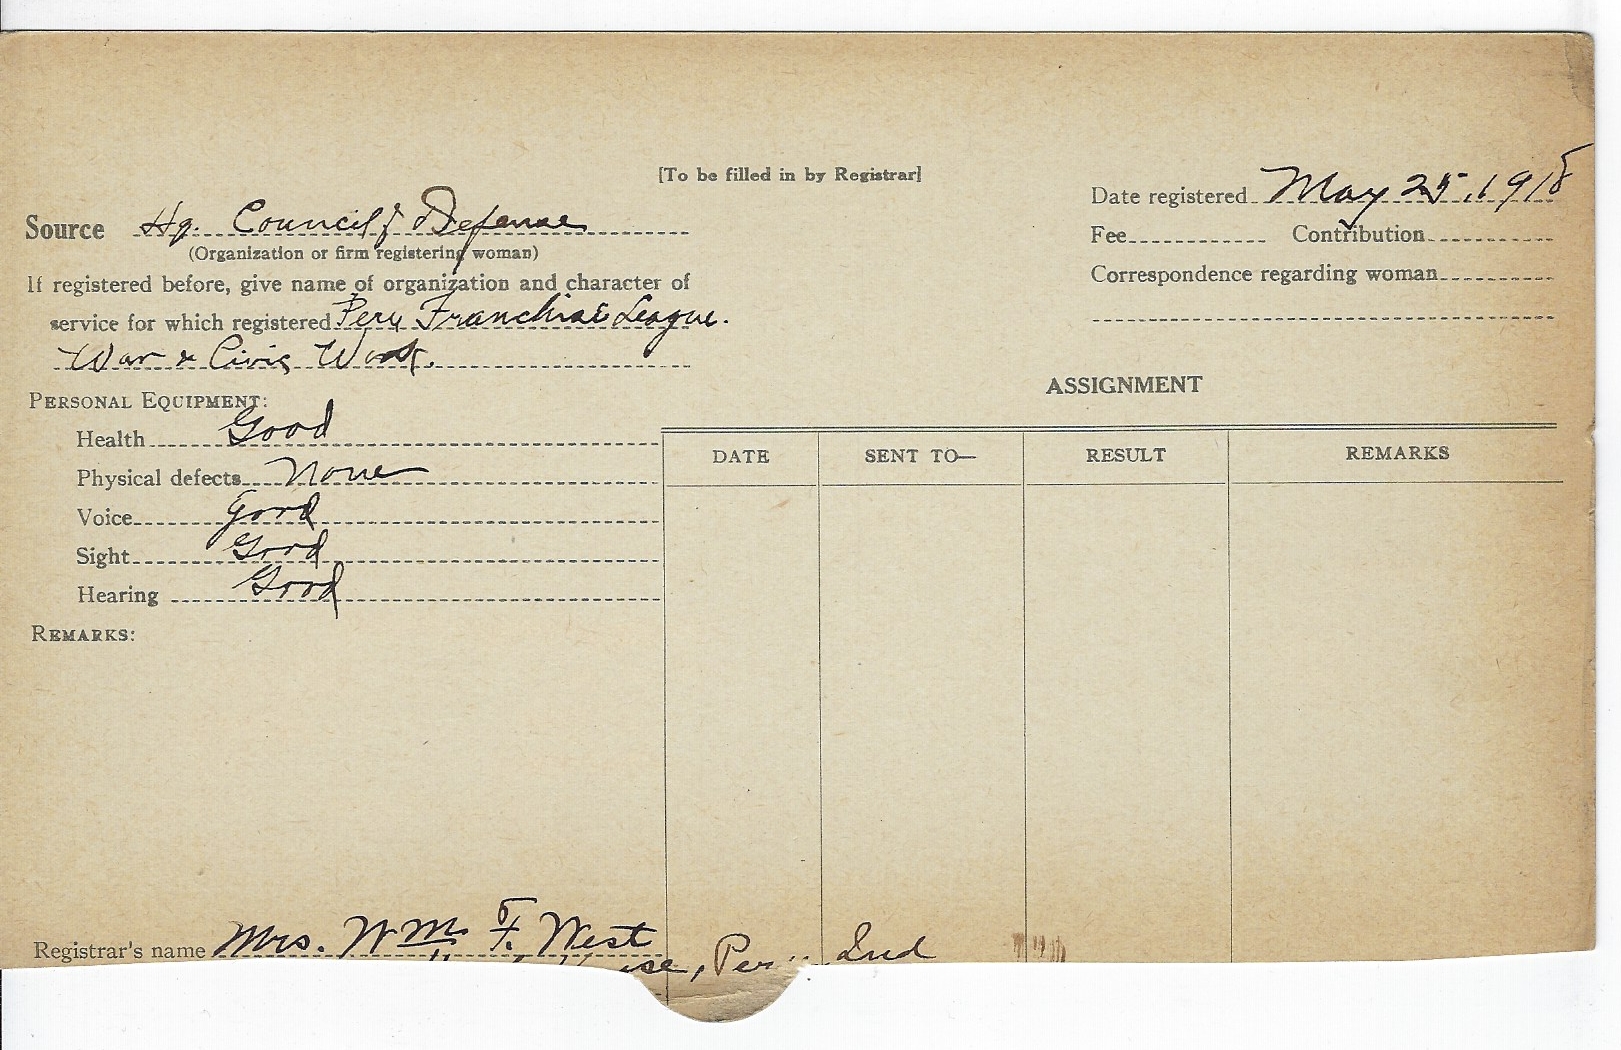 [To be filled in by Registrar]
Date registered May 25, 1918
Source Hq. Council of Defense
(Organization or firm registering woman)
Fee Contribution
If registered before, give name of organization and character of
Correspondence regarding woman
service for which registered Peru Franchise League.
War & Civic Work.
ASSIGNMENT
PERSONAL EQUIPMENT:
Health Good
DATE SENT TO— RESULT REMARKS
Physical defects None
Voice Good
Sight Good
Hearing Good
REMARKS:
Registrar's name Mrs. Wm. F. West
Ind